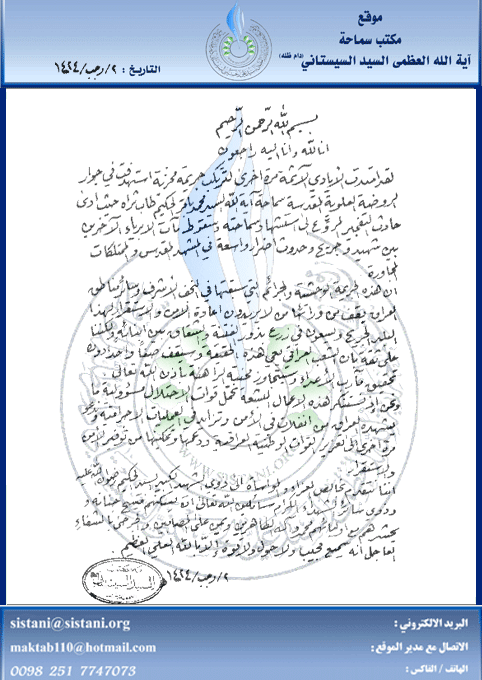 موقع
مكتب سماحة
آية الله العظمى السيد السيستاني (دام ظله)
التاريخ : ٢/رجب/١٤٢٤
بسم الله الرحمن الرحيم
انا لله وانا اليه راجعون
لقد امتدت الأيادي الآثمة مرة اخرى لترتكب جريمة مخزية استهدفت في جوار
الروضة العلوية المقدسة سماحة آية الله السيد محمد باقر الحكيم طاب ثراه حيث ادى
حادث التفجير المروّع الى استشهاد سماحته وسقوط مئات الأبرياء الآخرين
بين شهيد وجريح وحدوث اضرار واسعة في المشهد المقدس والممتلكات
المجاورة
ان هذه الجريمة الوحشية والجرائم التي سبقتها في النجف الأشرف وسائر مناطق
العراق يقف من ورائها من لا يريدون اعادة الأمن والاستقرار لهذا
البلد الجريح ويسعون في زرع بذور الفتنة والشقاق بين ابنائه ولكننا
على ثقة بأن الشعب العراقي يعي هذه الحقيقة وسيقف صفاً واحداً دون
تحقيق مآرب الأعداء وسيتجاوز المحنة الراهنة بإذن الله تعالى
ونحن إذ نستنكر هذه الأعمال البشعة نحمل قوات الاحتلال مسؤولية ما
يشهده العراق من انفلات في الأمن وتزايد في العمليات الاجرامية وندعو
مرة اخرى الى تعزيز القوات الوطنية العراقية ودعمها وتمكينها من توفير الأمن
والاستقرار
اننا نتقدم بخالص العزاء والمواساة الى ذوي الشهيد الكبير السيد الحكيم رضوان الله عليه
وذوي سائر الشهداء الكرام سائلين الله تعالى ان يسكنهم فسيح جنانه و
يحشرهم مع اوليائهم محمد وآله الطاهرين ويمن على المصابين والجرحى بالشفاء
العاجل انه سميع مجيب ولا حول ولا قوة الا بالله العلي العظيم
٢/رجب/١٤٢٤
البريد الالكتروني : sistani@sistani.org
الاتصال مع مدير الموقع : maktab110@hotmail.com
الهاتف / الفاكس : 0098 251 7747073